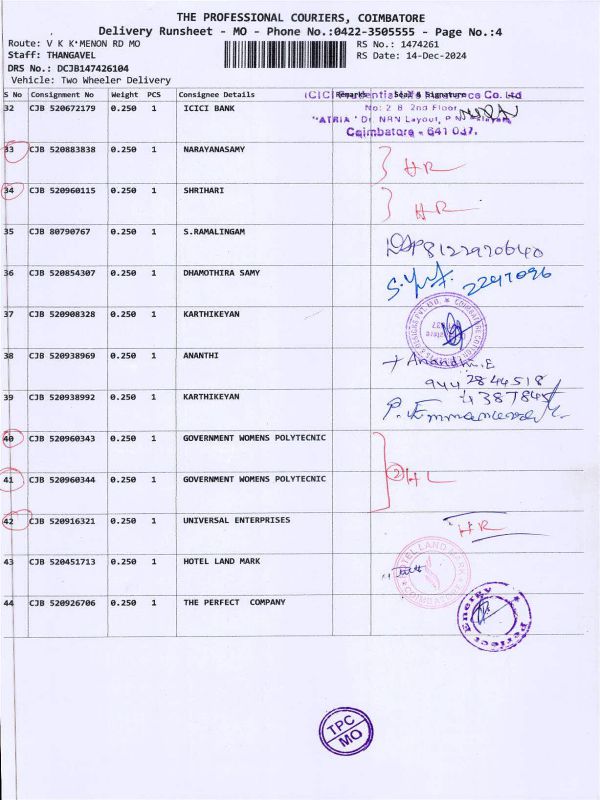 THE PROFESSIONAL COURIERS, COIMBATORE
Delivery Runsheet - MO - Phone No.:0422-3505555 - Page No.:4
Route: V K K*MENON RD MO
RS No.: 1474261
Staff: THANGAVEL
RS Date: 14-Dec-2024
DRS No.: DCJB147426104
Vehicle: Two Wheeler Delivery
S No Consignment No Weight PCS Consignee Details Remarks Seal & Signature
32 CJB 520672179 0.250 1 ICICI BANK
No: 2 8. 2nd Floor
Coimbatore - 641 037.
33 CJB 520883838 0.250 1 NARAYANASAMY HR
34 CJB 520960115 0.250 1 SHRIHARI HR
35 CJB 80790767 0.250 1 S.RAMALINGAM
36 CJB 520854307 0.250 1 DHAMOTHIRA SAMY
37 CJB 520908328 0.250 1 KARTHIKEYAN
38 CJB 520938969 0.250 1 ANANTHI Anandhi.E
944 2844518
39 CJB 520938992 0.250 1 KARTHIKEYAN
40 CJB 520960343 0.250 1 GOVERNMENT WOMENS POLYTECNIC
41 CJB 520960344 0.250 1 GOVERNMENT WOMENS POLYTECNIC 2 HL
42 CJB 520916321 0.250 1 UNIVERSAL ENTERPRISES HR
43 CJB 520451713 0.250 1 HOTEL LAND MARK
HOTEL LAND MARK
COIMBATORE
44 CJB 520926706 0.250 1 THE PERFECT COMPANY
Perfect Energy
TPC
MO